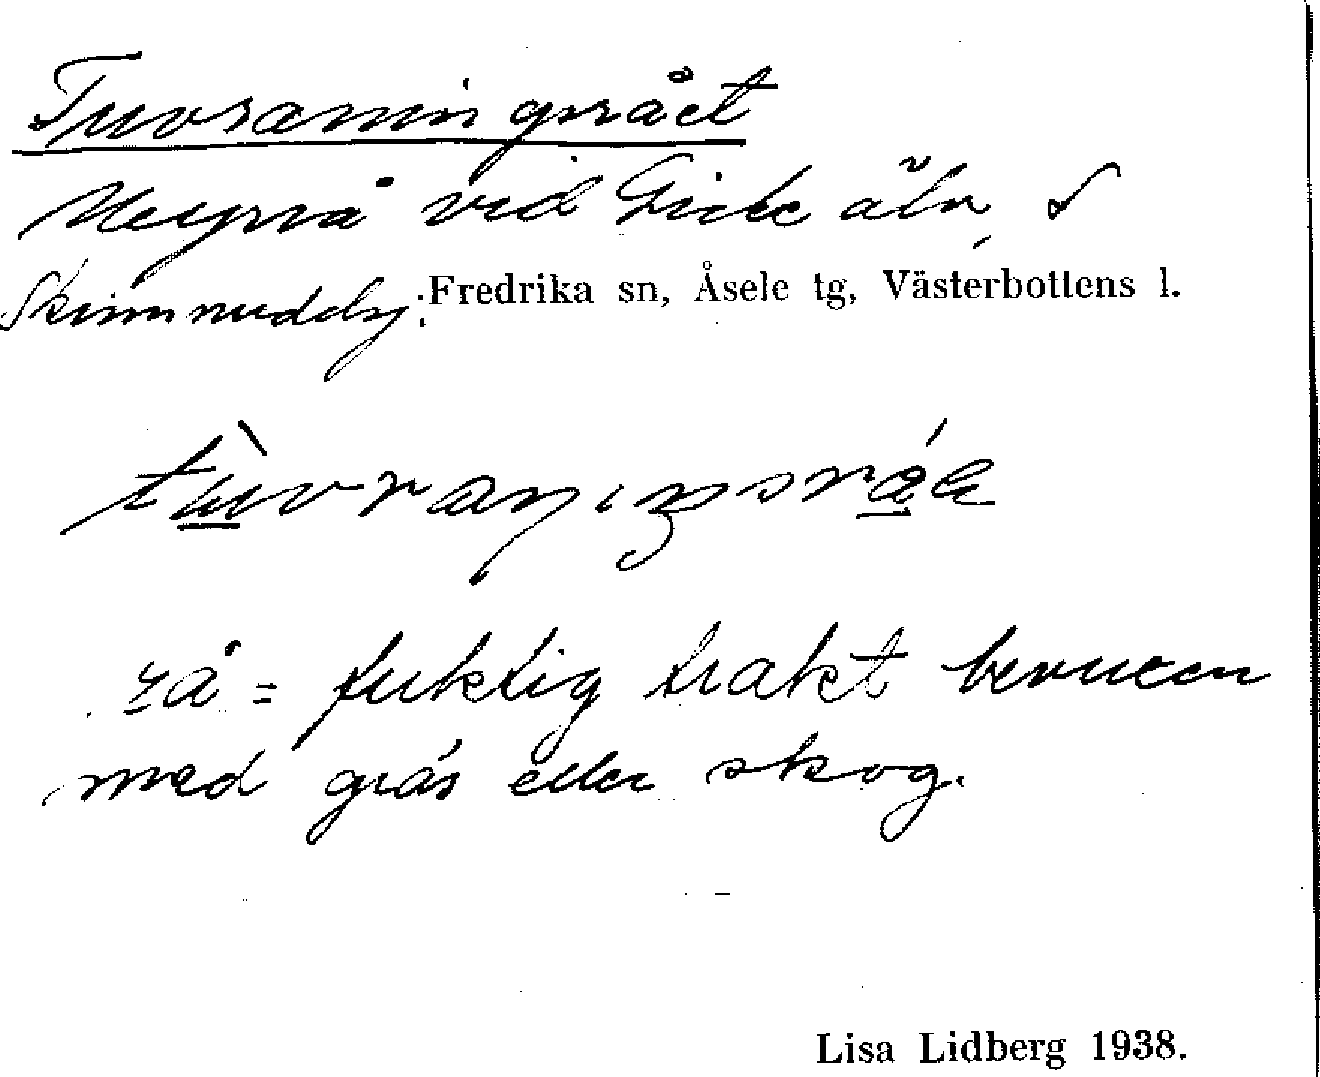 Tuvramin gsrået
Myrrå vid Gide älv, S
Skinnmuddsj. Fredrika sn, Åsele tg, Västerbottens l.
rå = fuktig trakt bevuxen
med gräs eller skog.
Lisa Lidberg 1938.